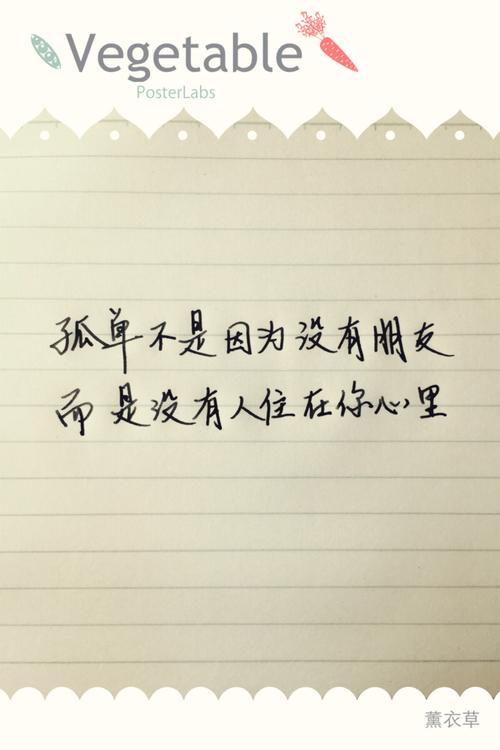 Vegetable
PosterLabs
孤单不是因为没有朋友
而是没有人住在你心里
薰衣草